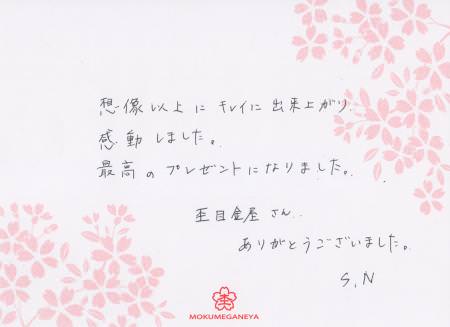 想像以上にキレイに出来上がり
感動しました。
最高のプレゼントになりました。
杢目金屋さん
ありがとうございました。
S,N
杢
MOKUMEGANEYA